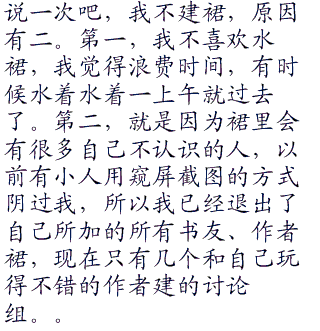 说一次吧，我不建裙，原因
有二。第一，我不喜欢水
裙，我觉得浪费时间，有时
候水着水着一上午就过去
了。第二，就是因为裙里会
有很多自己不认识的人，以
前有小人用窥屏截图的方式
阴过我，所以我已经退出了
自己所加的所有书友、作者
裙，现在只有几个和自己玩
得不错的作者建的讨论
组。。